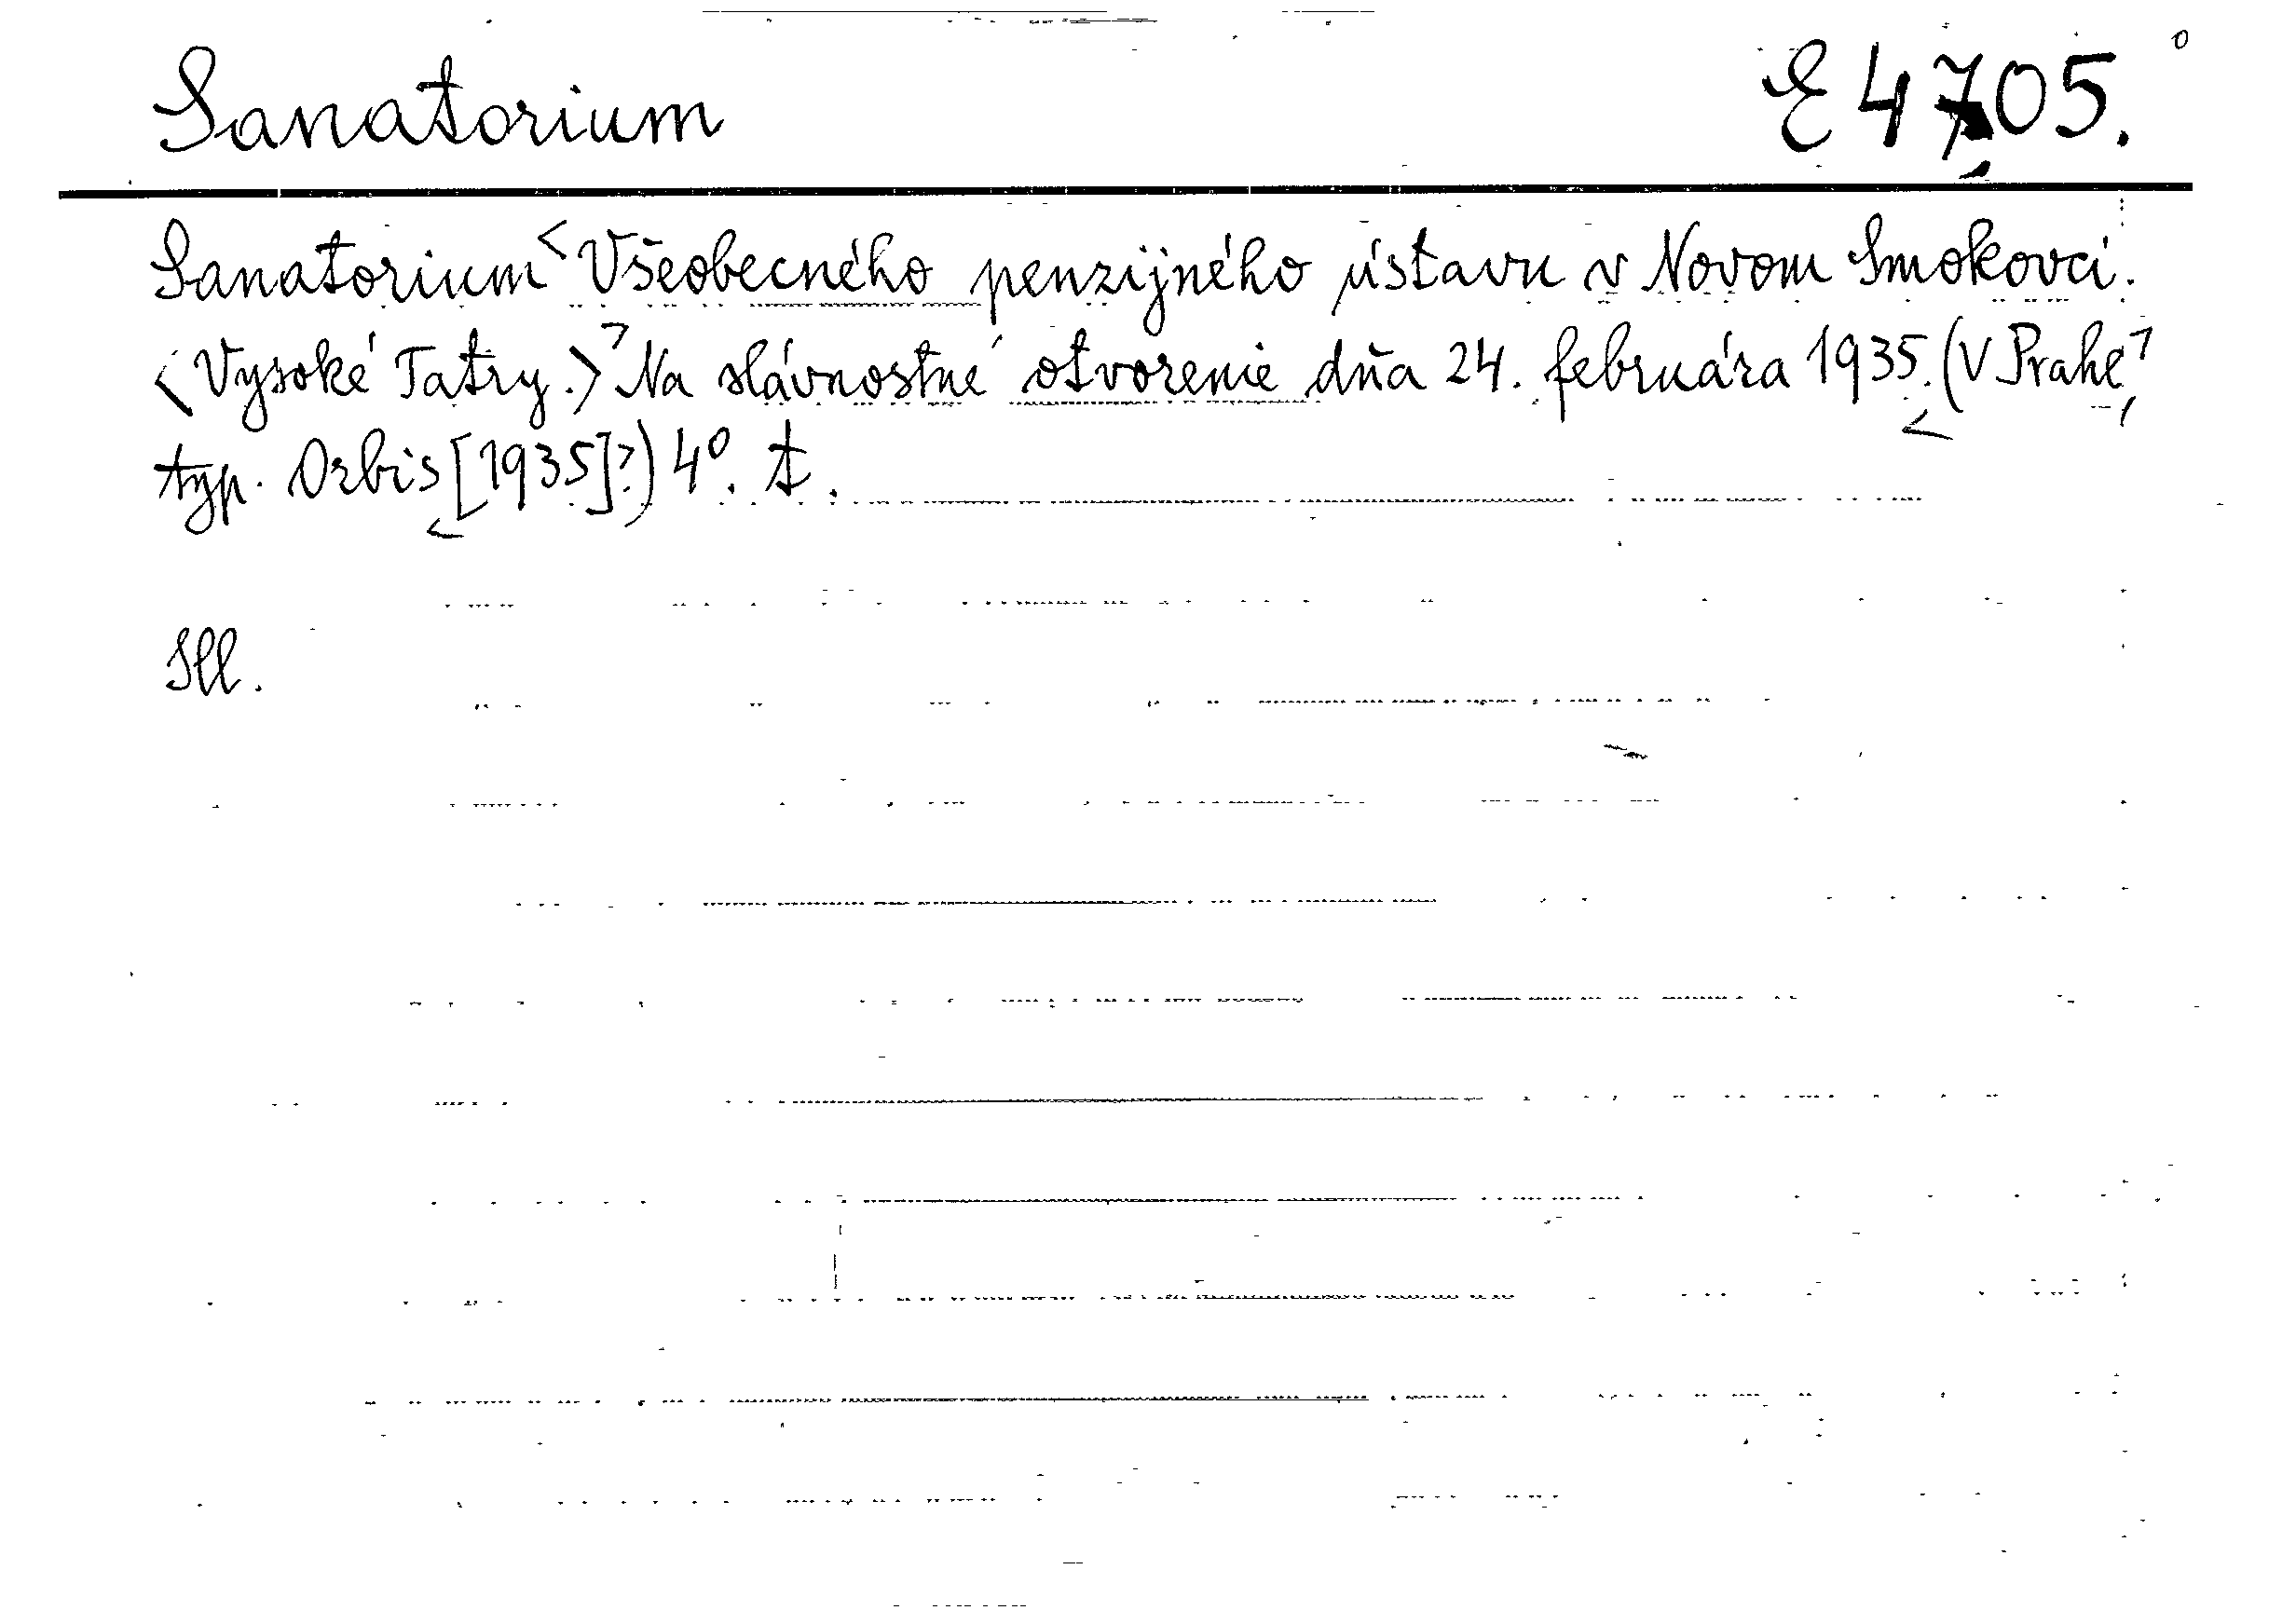 Sanatorium E 4705.
Sanatorium < Všeobecného penzijného ústavu v Novom Smokovci.
<Vysoké Tatry.> > Na slávnostné otvorenie dňa 24. februára 1935. < (V Prahe >,
typ. Orbis < [1935] >.) 4°. t.
Ill.